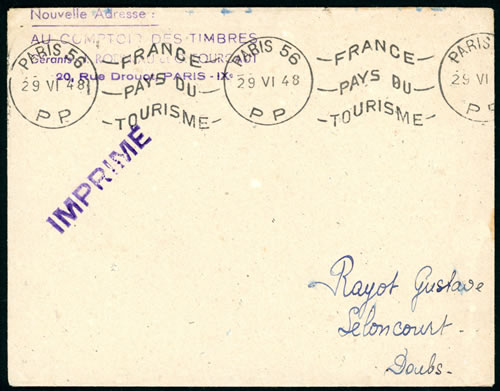 Nouvelle Adresse :
AU COMPTOIR DES TIMBRES
Gérants :
20, Rue Drouot, PARIS - IXe
PARIS 56
29 VI 48
P P
FRANCE
PAYS DU
TOURISME
PARIS 56
29 VI 48
P P
FRANCE
PAYS DU
TOURISME
PARIS
29 VI 48
P P
IMPRIMÉ
Rayot Gustave
Seloncourt -
Doubs -